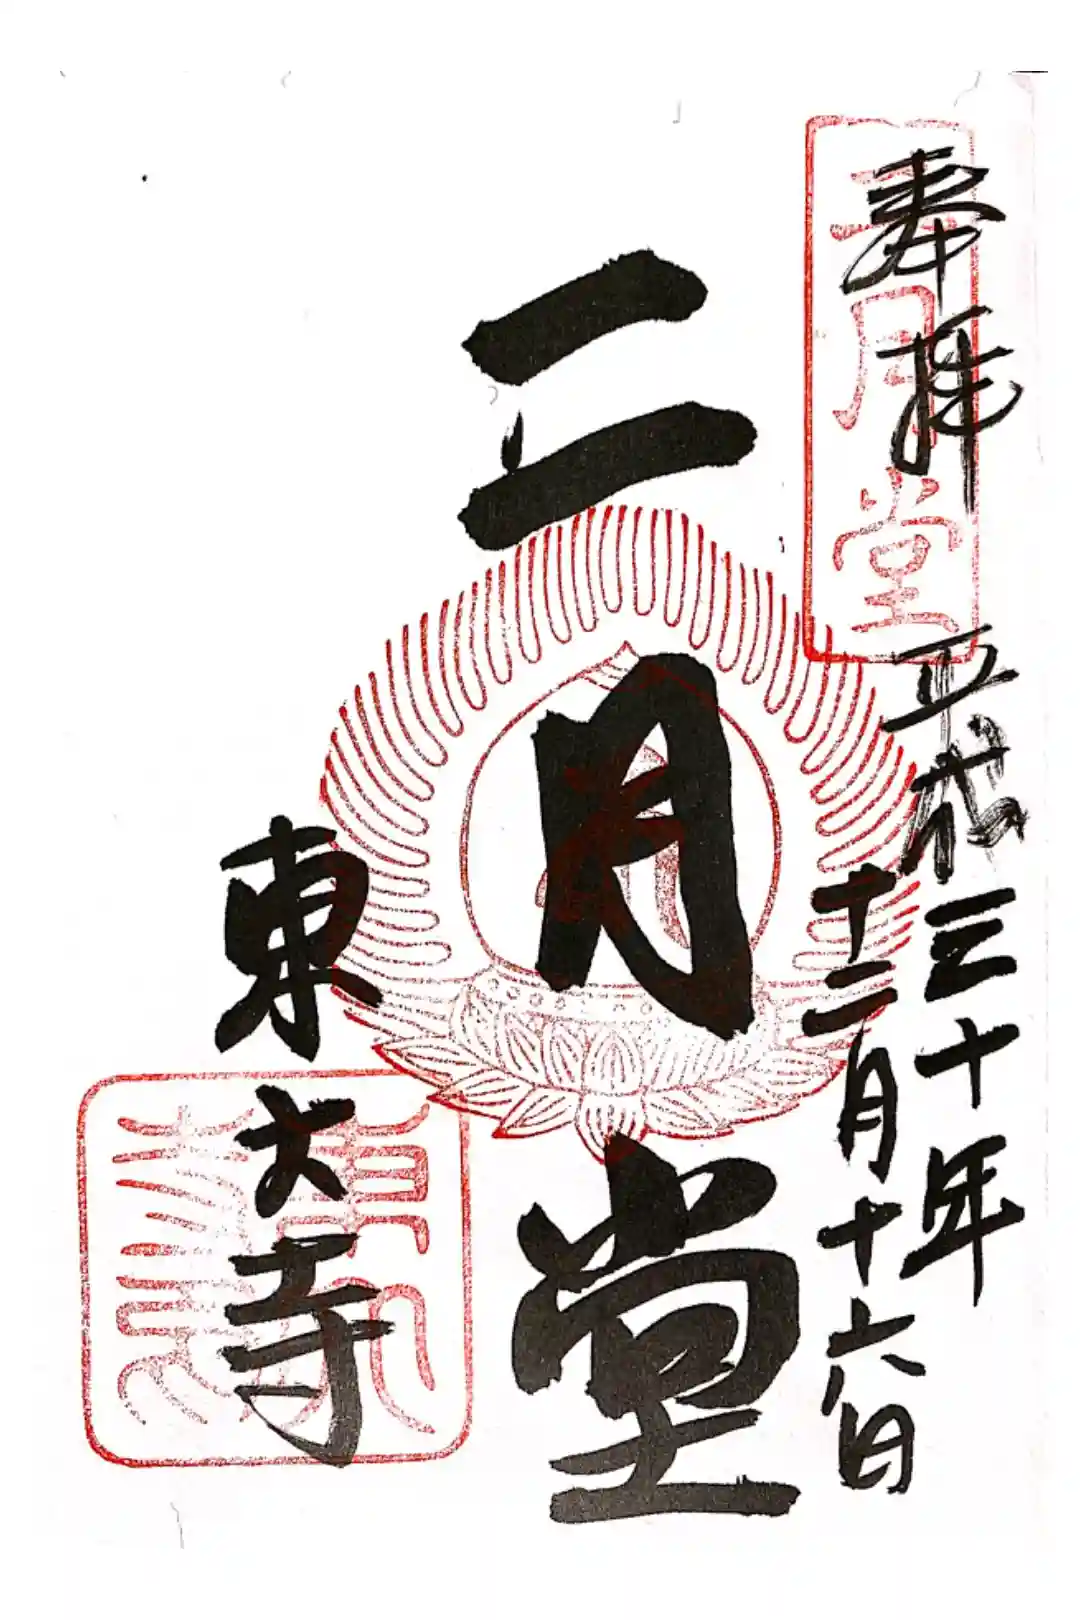 奉拝
平成三十年
十二月十六日
二月堂
二月堂
東大寺